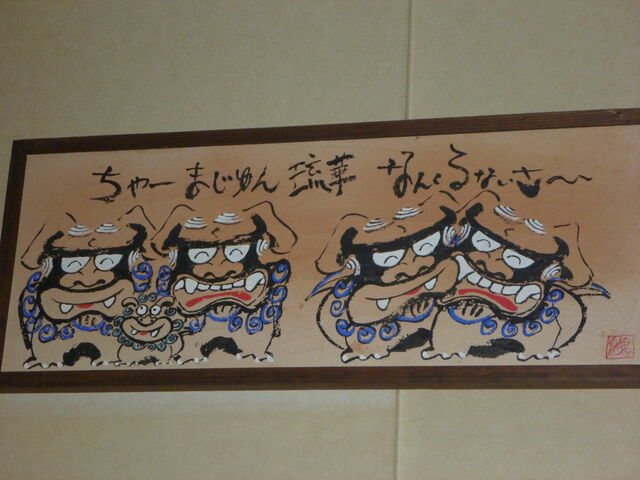 ちゃーまじゅん 琉華 なんくるないさ〜